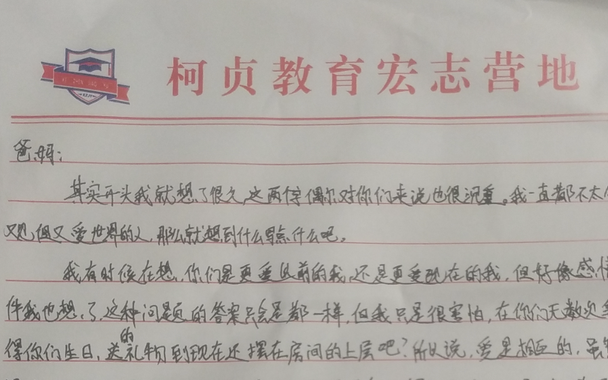 柯贞教育宏志营地
爸、妈:
其实开头我就想了很久,这两字偶尔对你们来说也很沉重。我一直都不太
又见但又爱世界的人,那么就想到什么写点什么吧。
我有时候在想,你们是更爱以前的我,还是更爱现在的我,但好像感情
件我也想了,这种问题的答案只会是都一样,但我只是很害怕,在你们无数次
得你们生日,送的礼物到现在还摆在房间的上层吧?所以说,爱是相互的,虽